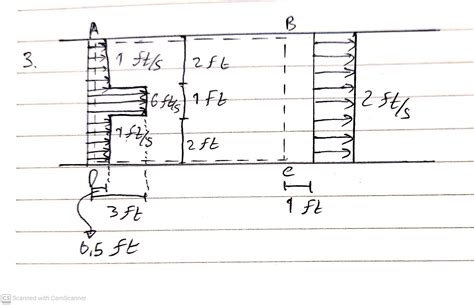 A B
3. 1 ft/s 2 ft
6 ft/s 1 ft 2 ft/s
1 ft/s 2 ft
D C
3 ft 1 ft
0,5 ft
CS Scanned with CamScanner